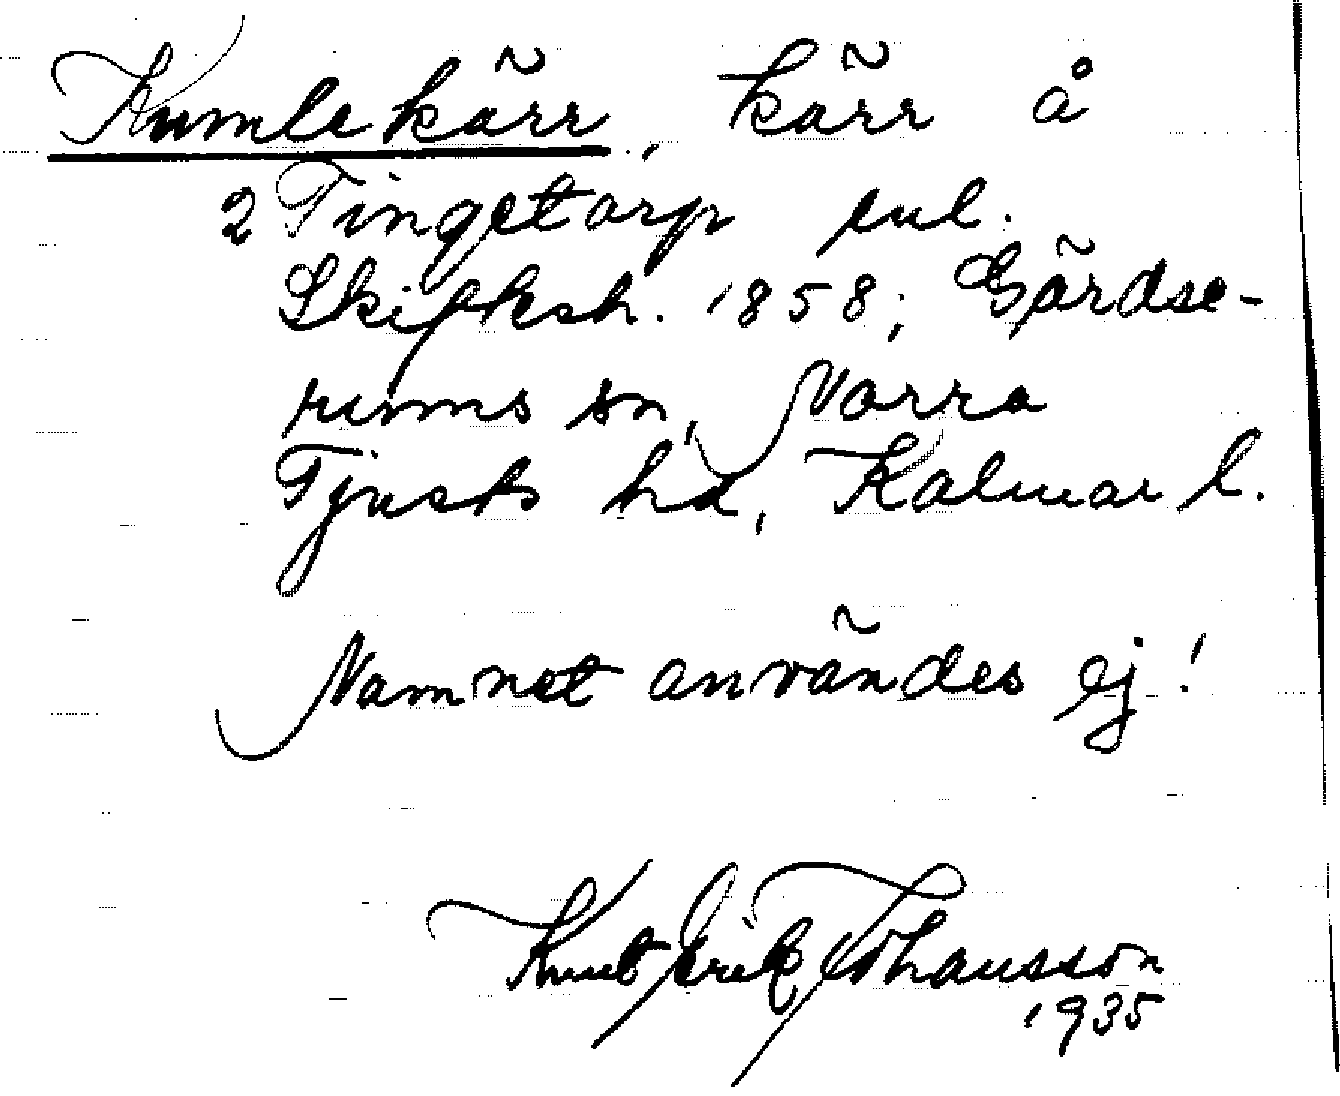 Kumlekärr, kärr å
2 Tingetorp enl.
Skiftesh. 1858; Gärdse-
rums sn, Norra
Tjusts hd, Kalmar l.
Namnet användes ej!
Knut Erik Johansson
1935